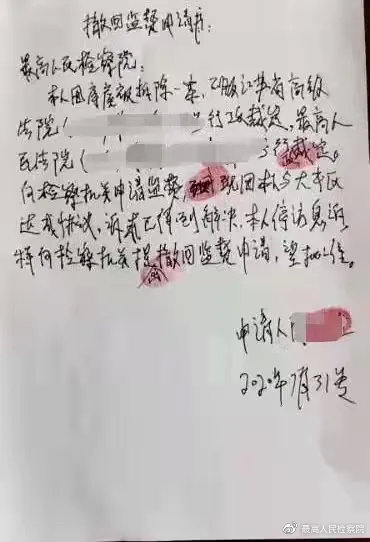 撤回监督申请书
最高人民检察院:
本人因房屋被拆除一案,不服江苏省高级
法院( )行政裁定,最高人
民法院( )行政裁定。
向检察机关申请监督,现因本人与大丰区
达成协议,诉求已得到解决,本人停访息诉
特向检察机关提撤回监督申请,望批准。
申请人
2020年7月31号
@最高人民检察院